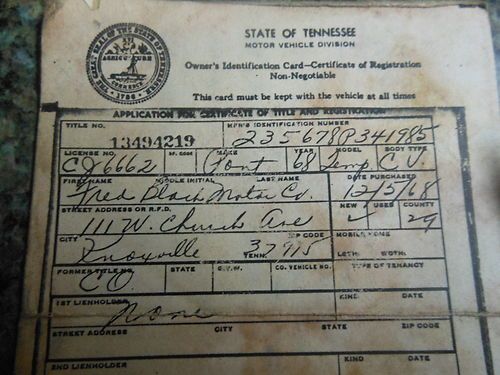 THE GREAT SEAL OF THE STATE OF TENNESSEE
XVI
AGRICULTURE
COMMERCE
1796
STATE OF TENNESSEE
MOTOR VEHICLE DIVISION
Owner's Identification Card—Certificate of Registration
Non-Negotiable
This card must be kept with the vehicle at all times
APPLICATION FOR CERTIFICATE OF TITLE AND REGISTRATION
TITLE NO. MFR'S IDENTIFICATION NUMBER
13494219 235678P341985
LICENSE NO. SP. CODE MAKE YEAR MODEL BODY TYPE
CJ6662 Pont 68 Temp CV
FIRST NAME MIDDLE INITIAL LAST NAME DATE PURCHASED
Fred Black Motor Co. 12/5/68
STREET ADDRESS OR R.F.D. NEW USED COUNTY
111 W. Church Ave ✓ 29
CITY ZIP CODE MOBILE HOME
Knoxville TENN. 37915 LGTH. WDTH.
FORMER TITLE NO. STATE G.V.W. CO. VEHICLE NO. TYPE OF TENANCY
CO.
1ST LIENHOLDER KIND DATE
None
STREET ADDRESS CITY STATE ZIP CODE
2ND LIENHOLDER KIND DATE